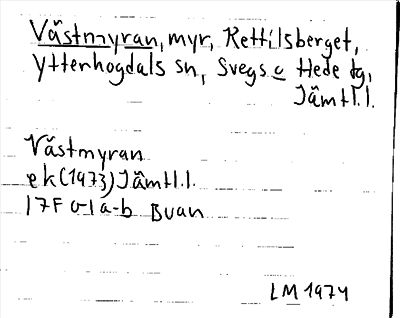 Västmyran, myr, Kettilsberget,
Ytterhogdals sn, Svegs o Hede tg,
Jämtl.l.
Västmyran
ek (1973) Jämtl.l.
17F 0-1a-b Buan
LM 1974